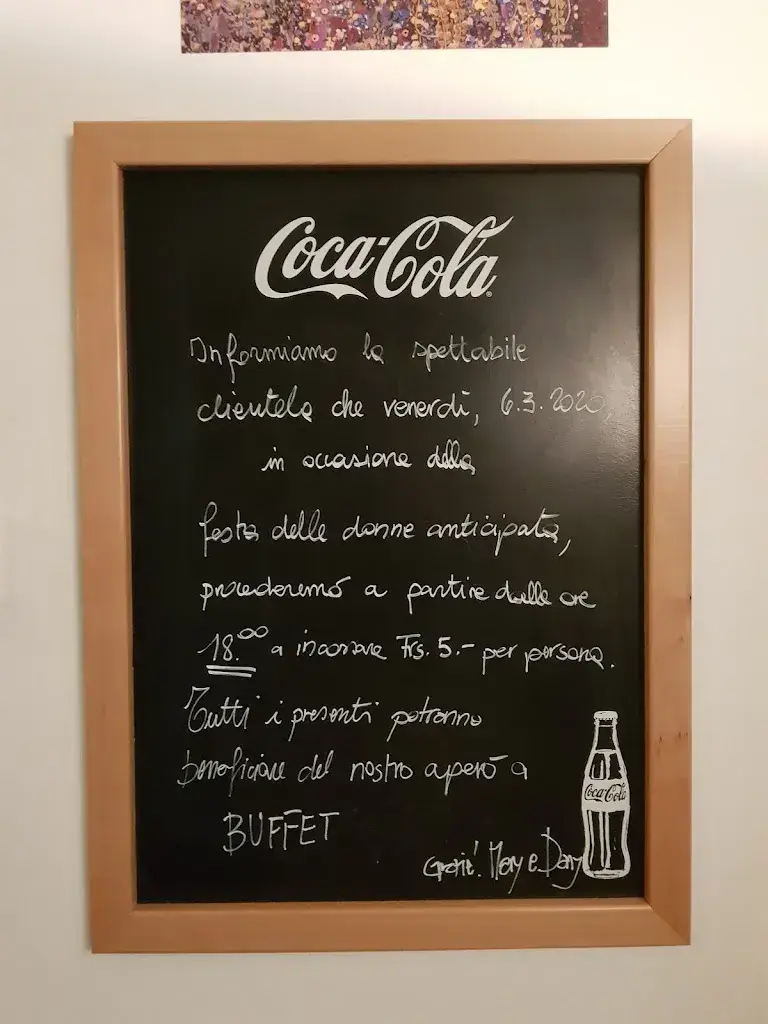 Coca-Cola
Informiamo la spettabile
clientela che venerdì, 6.3.2020,
in occasione della
festa delle donne anticipata,
procederemo a partire dalle ore
18.00 a incassare Frs. 5.- per persona.
Tutti i presenti potranno
beneficiare del nostro aperò a
BUFFET
Grazie! Mary e Dany
Coca-Cola